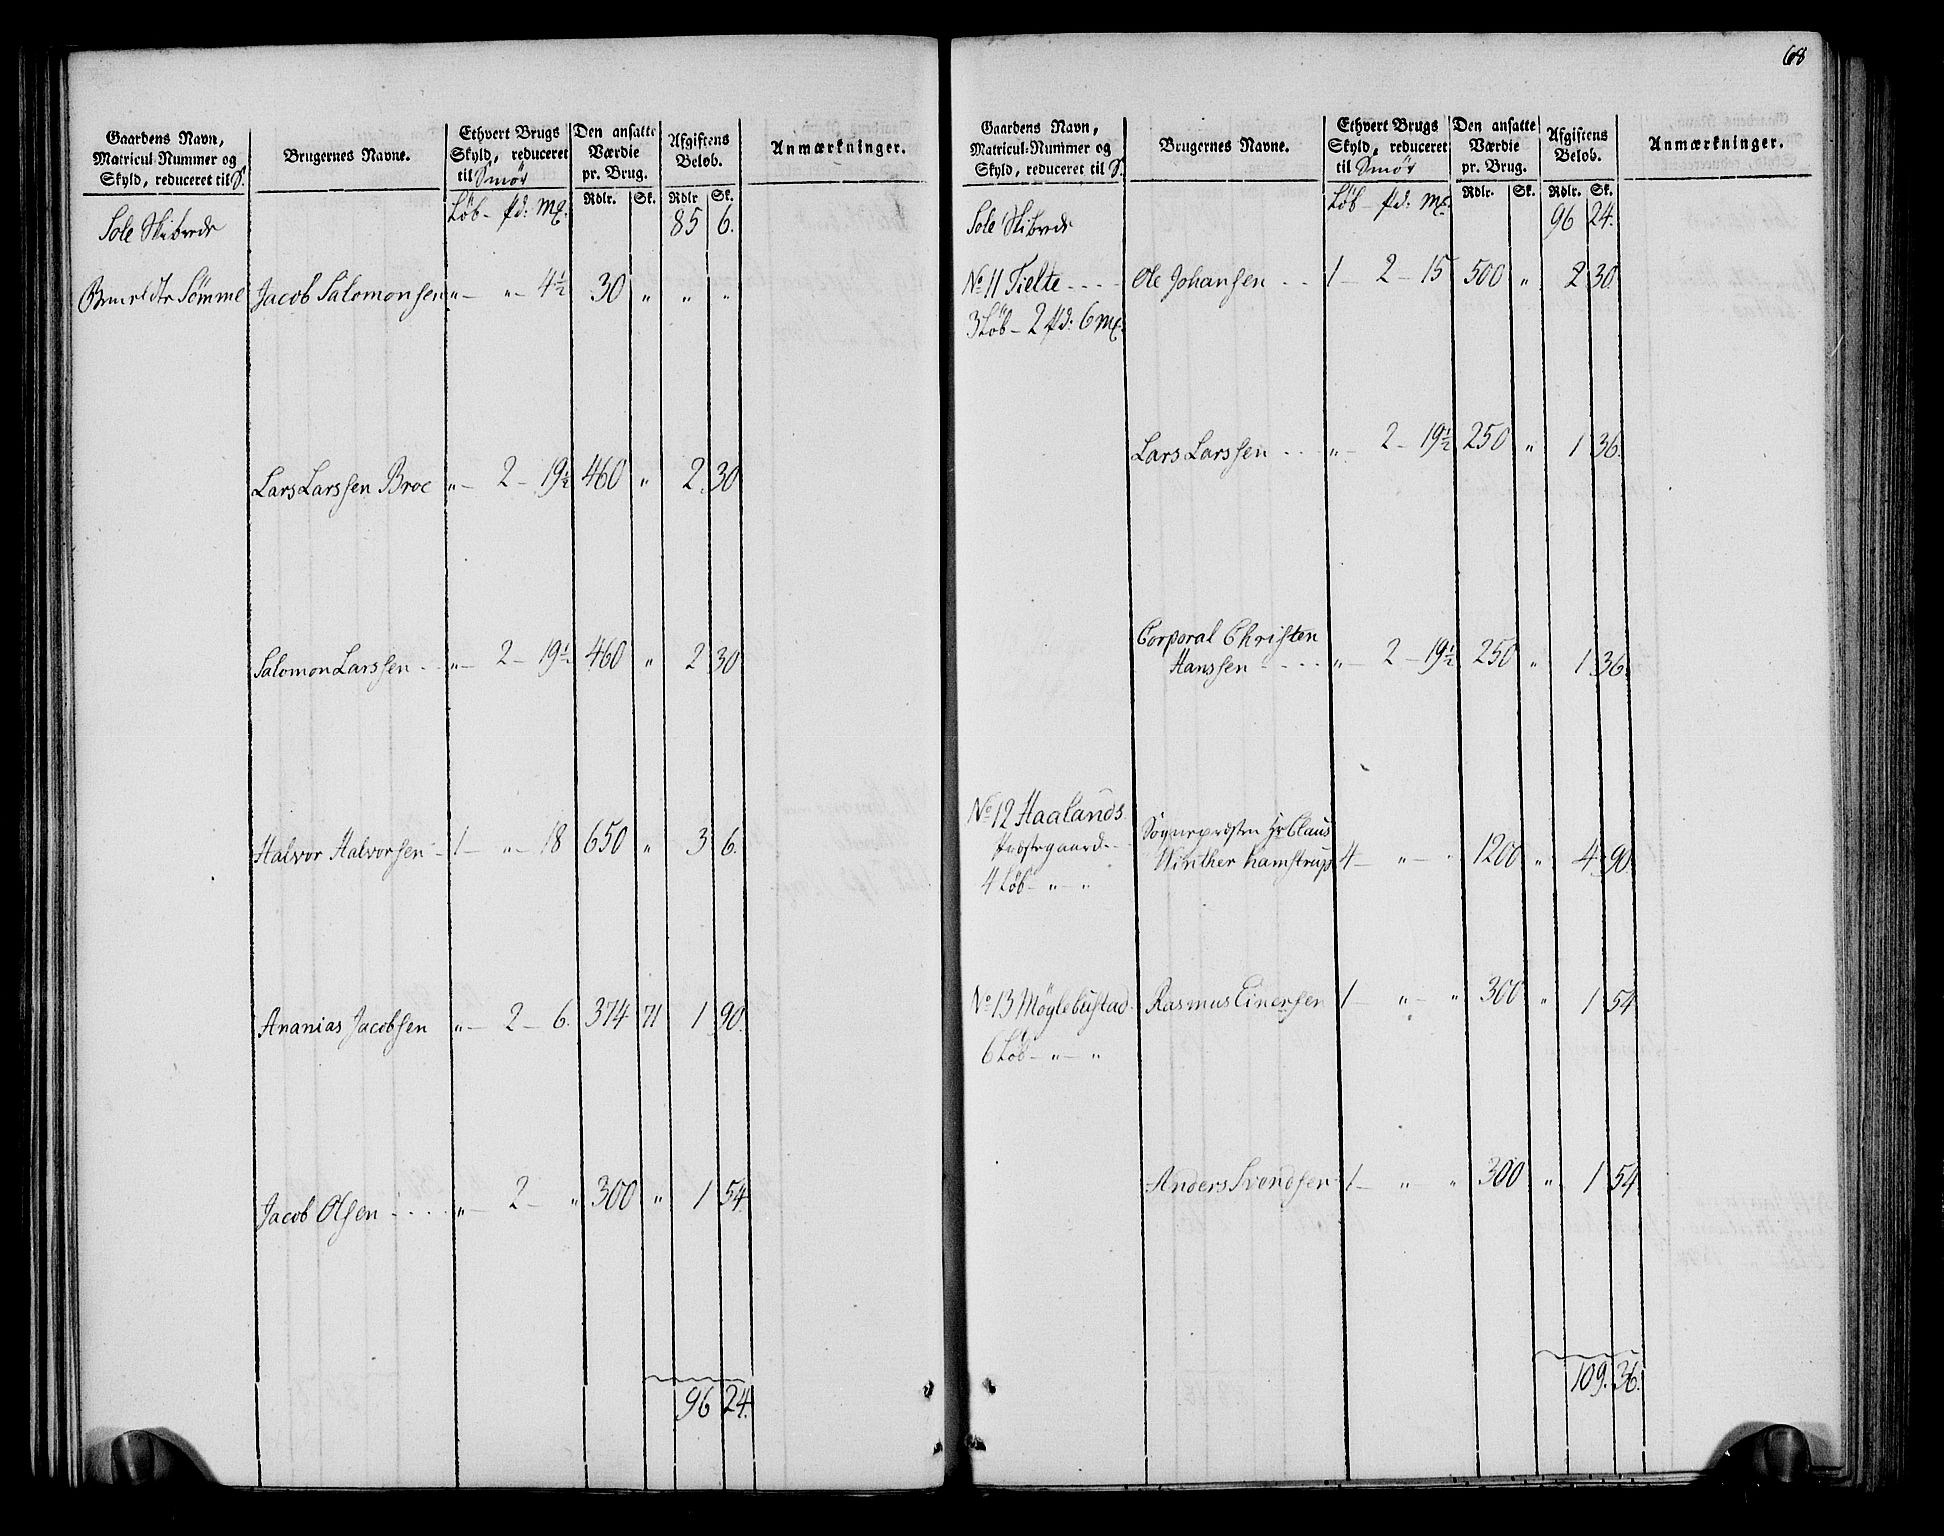 68
Gaardens Navn, Matricul-Nummer og Skyld, reduceret til S. | Brugernes Navne. | Ethvert Brugs Skyld, reduceret til Smör | Den ansatte Værdie pr. Brug. | Afgiftens Beløb. | Anmærkninger.
Löb – pd: mk: | Rdlr. | Sk. | Rdlr | Sk.
Sole Skibrede 85 6.
Sömme Jacob Salomonsen „ – „ – 4½ 30 „ „ „
Lars Larssen Broe „ – 2 – 19½ 460 „ 2. 30
Salomon Larssen . . „ – 2 – 19½ 460 „ 2 30
Halvor Halvorsen – 1 – „ – 18 650 „ 3 6.
Ananias Jacobsen „ – 2 – 6. 374 71 1 90.
Jacob Olsen . . . . „ – 2 – „ 300 „ 1 54.
96 24.
Gaardens Navn, Matricul-Nummer og Skyld, reduceret til S. | Brugernes Navne. | Ethvert Brugs Skyld, reduceret til Smör | Den ansatte Værdie pr. Brug. | Afgiftens Beløb. | Anmærkninger.
Löb – pd: mk: | Rdlr. | Sk. | Rdlr. | Sk.
Sole Skibrede 96 24.
No 11 Tielte . . . . Ole Johansen . . 1 – 2 – 15 500 „ 2 30.
3 Löb – 2 pd: 6 mk:
Lars Larssen . . . „ – 2 – 19½ 250 „ 1 36.
Corporal Christen
Hanssen . . . . „ – 2 – 19½ 250 „ 1 36.
No 12 Haalands
Præstegaard . . Sogneprästen Hr Claus
4 Löb – „ – „ Winther Hamstrup 4 – „ – „ 1200 „ 4. 90.
No 13 Möglebustad Rasmus Einersen 1 – „ – „ 300 „ 1 54
6 Löb – „ – „
Anders Svendsen 1 – „ – „ 300 „ 1 54
109. 36.